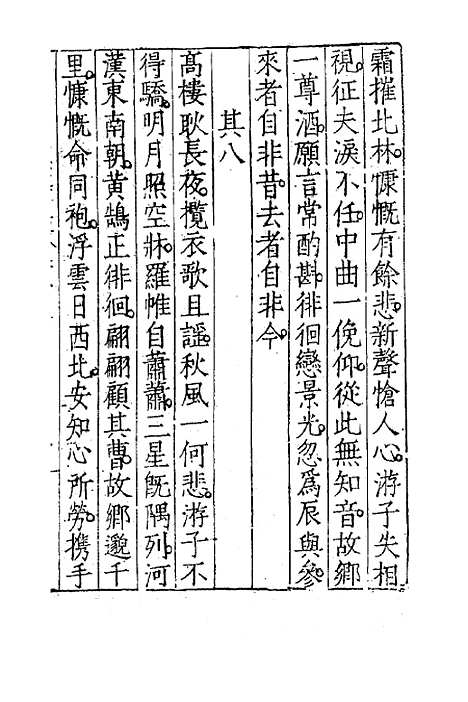 霜摧北林。慷慨有餘悲。新聲愴人心。游子失相
視。征夫淚不任。中曲一俛仰。從此無知音。故鄉
一尊酒。願言常酌斟。徘徊戀景光。忽爲辰與參。
來者自非昔。去者自非今。
其八
高樓耿長夜。攬衣歌且謡。秋風一何悲。游子不
得驕。明月照空牀。羅帷自蕭蕭。三星旣隅列。河
漢東南朝。黃鵠正徘徊。翩翩顧其曹。故鄉邈千
里。慷慨命同袍。浮雲日西北。安知心所勞。携手